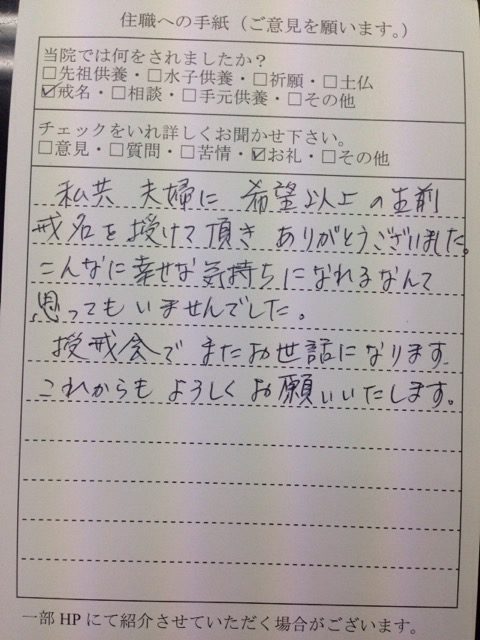 住職への手紙（ご意見を願います。）
当院では何をされましたか？
□先祖供養・□水子供養・□祈願・□土仏
☑戒名・□相談・□手元供養・□その他
チェックをいれ詳しくお聞かせ下さい。
□意見・□質問・□苦情・☑お礼・□その他
私共 夫婦に 希望以上の生前
戒名を授けて頂き ありがとうございました。
こんなに幸せな気持ちになれるなんて
思ってもいませんでした。
授戒会で またお世話になります
これからも よろしくお願いいたします。
一部 HP にて紹介させていただく場合がございます。